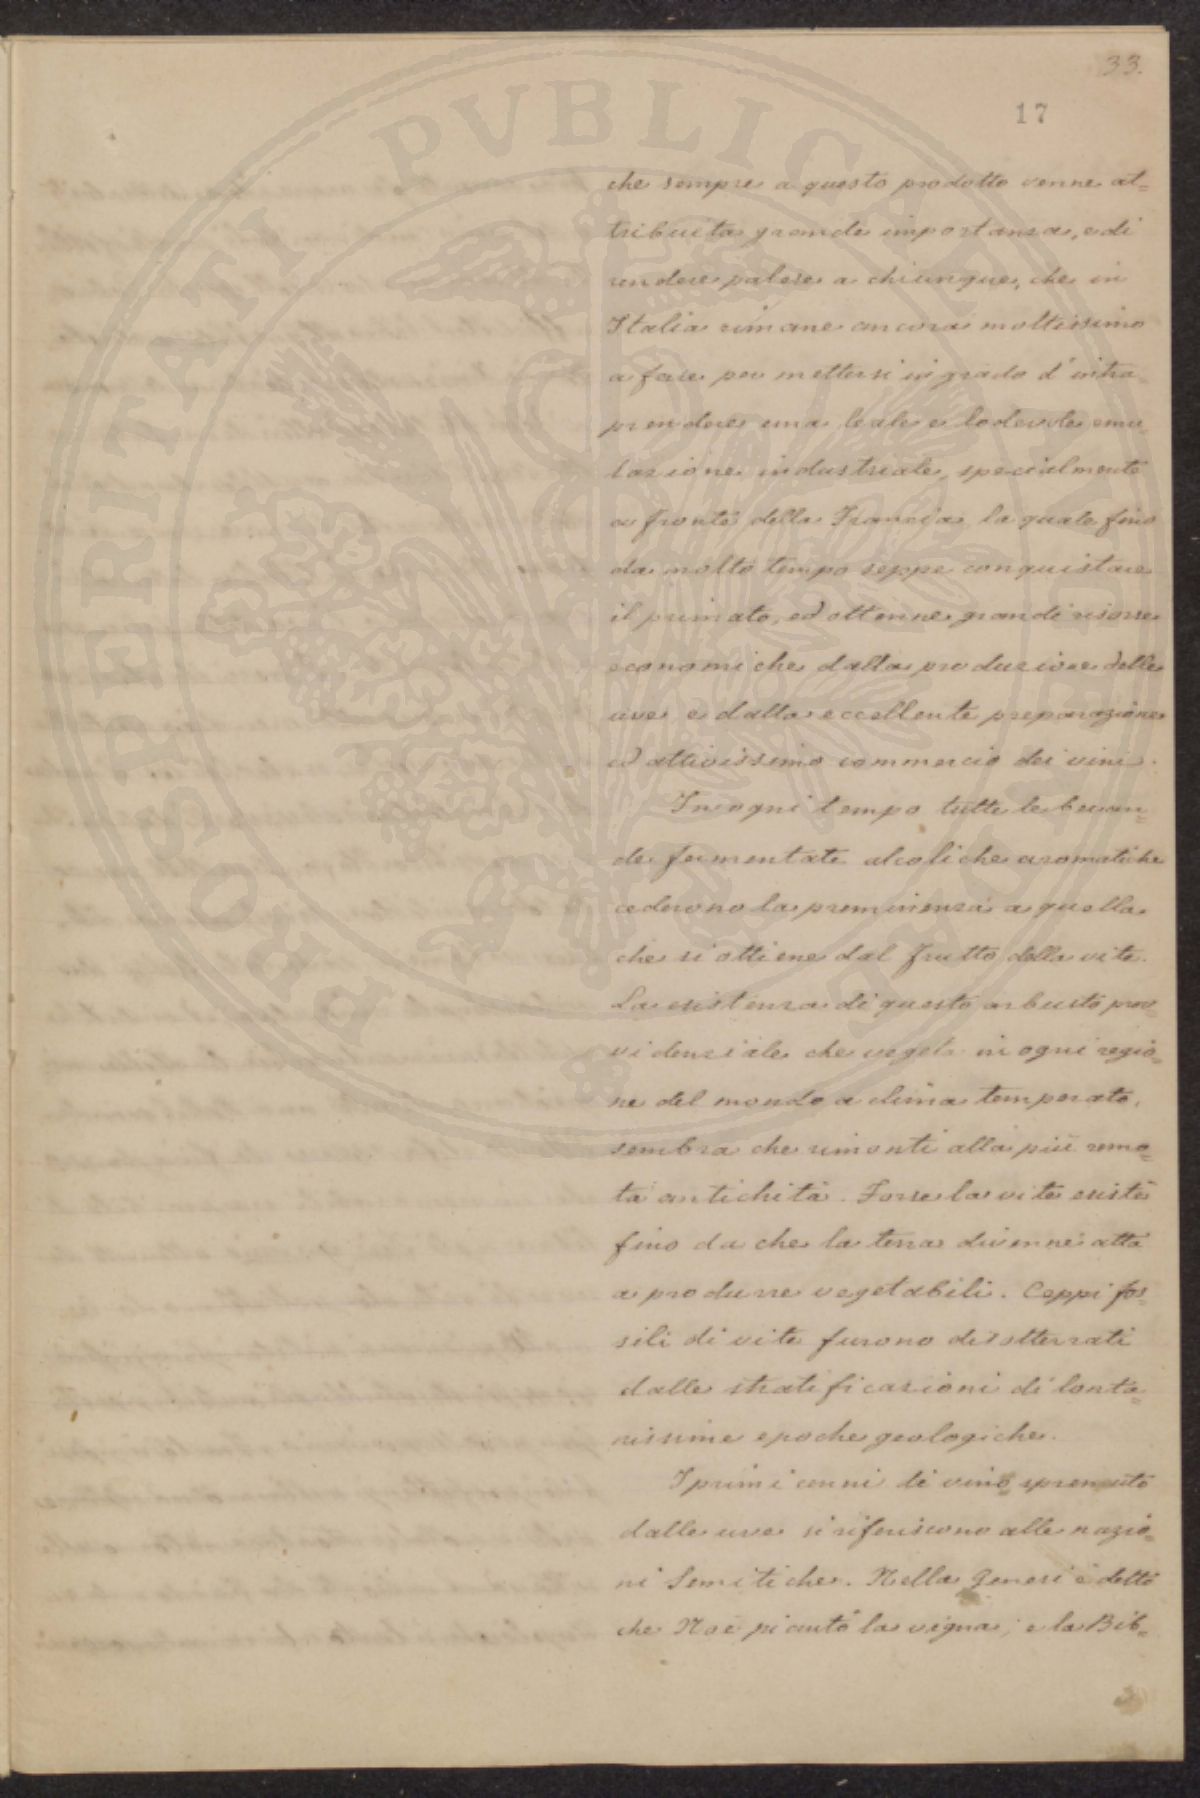 33.
17
PROSPERITATI PVBLICAE
che sempre a questo prodotto venne at=
tribuita grande importanza, e di
rendere palese a chiunque, che in
Italia rimane ancora moltissimo
a fare per mettersi in grado d'intra=
prendere una leale e lodevole emu=
lazione industriale, specialmente
a fronte della Francia, la quale fino
da molto tempo seppe conquistare
il primato, ed ottenne grandi risorse
economiche dalla produzione delle
uve e dalla eccellente preparazione
ed attivissimo commercio dei vini.
In ogni tempo tutte le bevan=
de fermentate alcoliche aromatiche
cederono la preminenza a quella
che si ottiene dal frutto della vite.
La esistenza di questo arbusto prov=
videnziale che vegeta in ogni regio=
ne del mondo a clima temperato,
sembra che rimonti alla più remo=
ta antichità. Forse la vite esistè
fino da che la terra divenne atta
a produrre vegetabili. Ceppi fos=
sili di vite furono disotterrati
dalle stratificazioni di lonta=
nissime epoche geologiche.
I primi cenni di vino spremuto
dalle uve si riferiscono alle nazio=
ni Semitiche. Nella Genesi è detto
che Noè piantò la vigna; e la Bib=